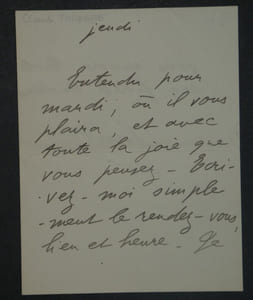 jeudi
Entendu pour
mardi, où il vous
plaira, et avec
toute la joie que
vous pensez - Ecri-
-vez-moi simple
-ment le rendez-vous,
lieu et heure - Je